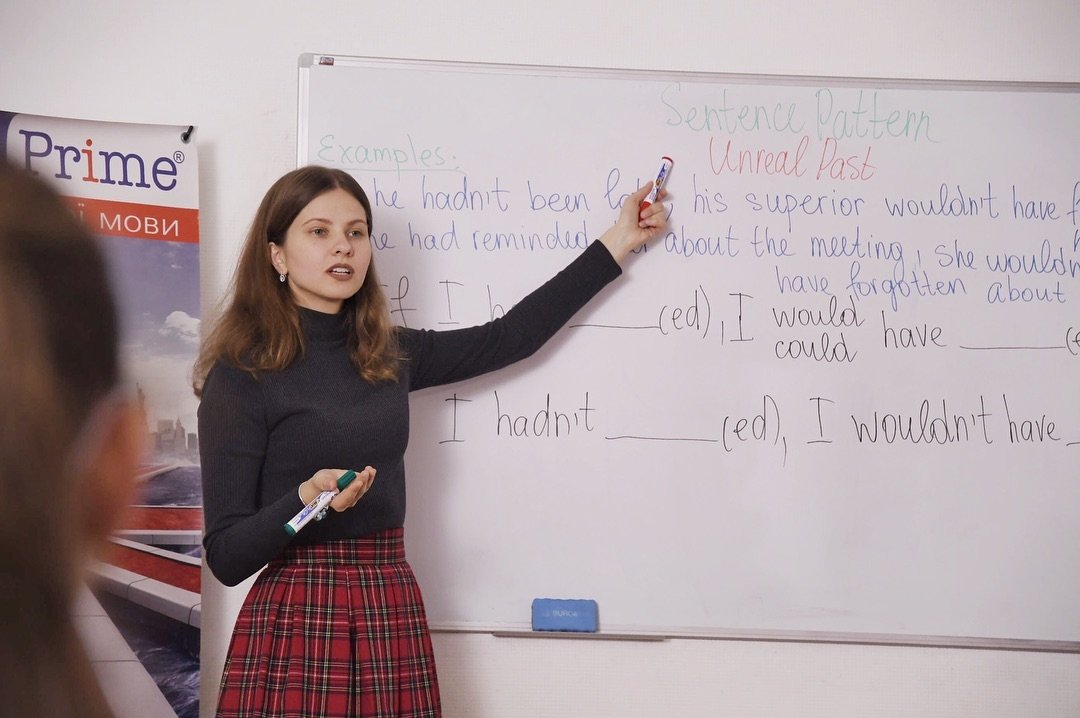 Prime®
МОВИ
Sentence Pattern
Unreal Past
Examples:
he hadn't been his superior wouldn't have
he had reminded about the meeting, she
have forgotten about
If I (ed), I would have
could
I hadn't (ed), I wouldn't have